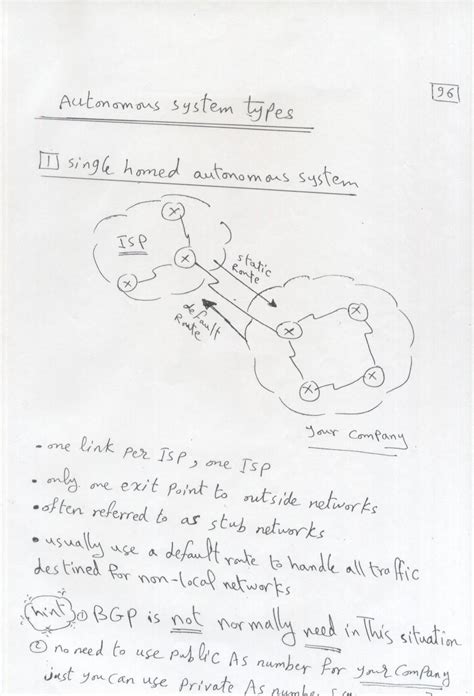 96
Autonomous system types
1 single homed autonomous system
ISP
static
Route
default
Route
your Company
- one link per ISP, one ISP
• only one exit point to outside networks
• often referred to as stub networks
• usually use a default route to handle all traffic
destined for non-local networks
hint ① BGP is not normally need in This situation
② no need to use public As number for your Company
just you can use private As number